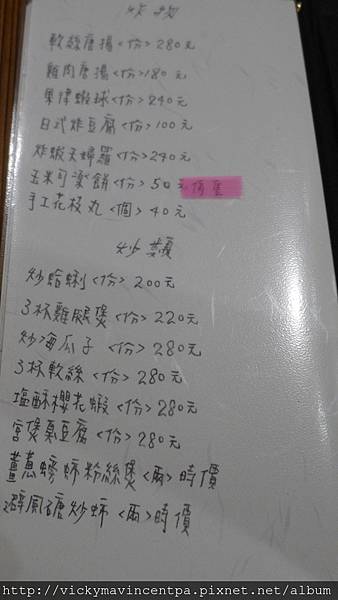 炸物
軟絲唐揚<份>280元
雞肉唐揚<份>180元
果律蝦球<份>240元
日式炸豆腐<份>100元
炸蝦天婦羅<份>240元
玉米可樂餅<份>50元
手工花枝丸<個>40元
炒類
炒蛤蜊<份>200元
3杯雞腿煲<份>220元
炒海瓜子<份>280元
3杯軟絲<份>280元
塩酥櫻花蝦<份>280元
宮煲臭豆腐<份>280元
薑蔥螃蟳粉絲煲<兩>時價
避風塘炒蟳<兩>時價
http://vickymavincentpa.pixnet.net/album